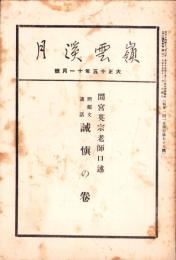 嶺雲溪月
大正十五年十一月號
間宮英宗老師口述
講話
誠愼の卷